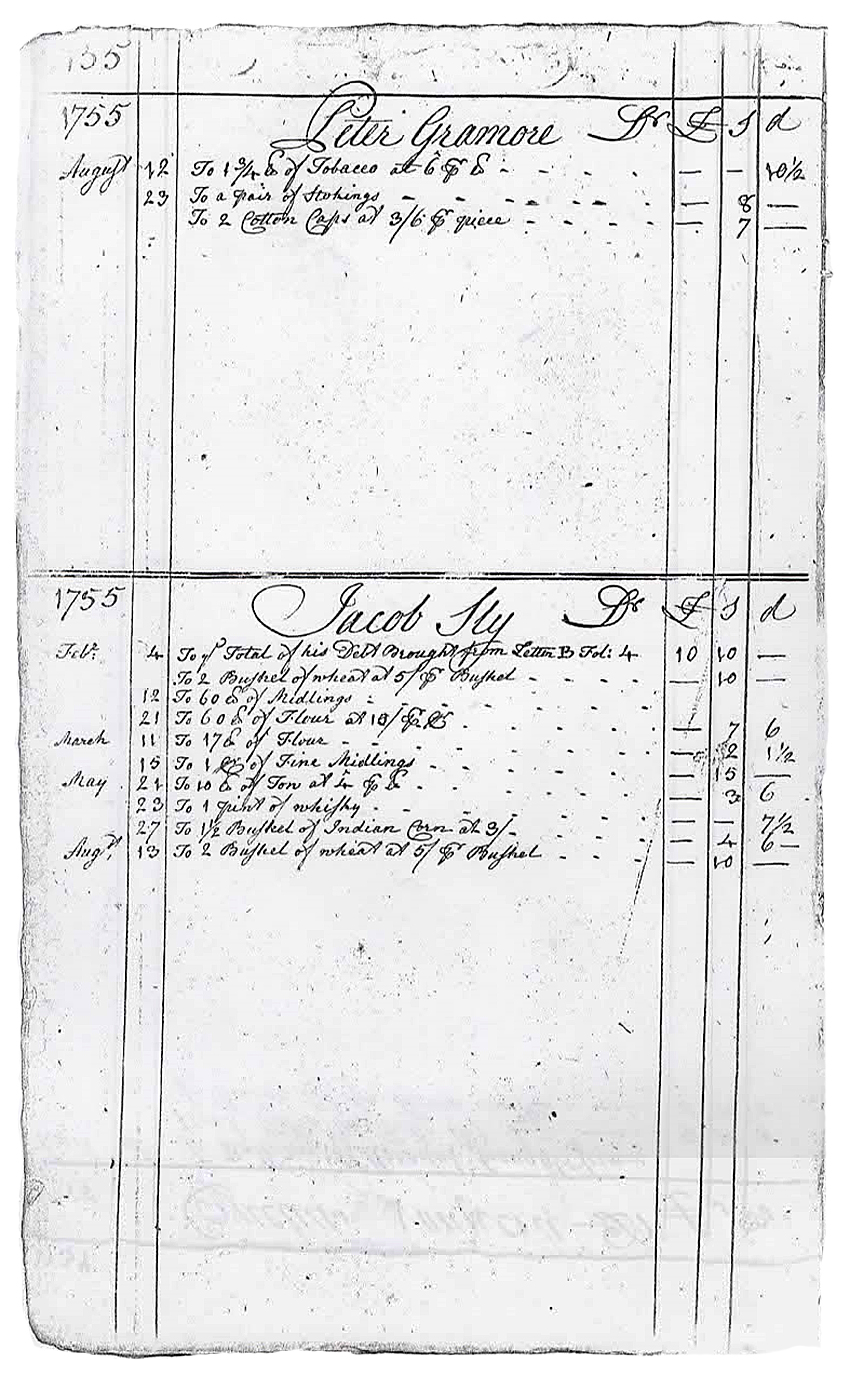 155
1755 Peter Gramore Dr £ S d
August 12 To 1 3/4 lb of Tobacco at 6 ⅌ lb - - - - - — — 10 1/2
23 To a pair of Stokings - - - - - — 8 —
To 2 Cotton Caps at 3/6 ⅌ piece - - - - — 7 —
1755 Jacob Sly Dr £ S d
Febr: 4 To ye Total of his Debt Brought from Letter B Fol: 4 10 10 —
To 2 Bushel of wheat at 5/ ⅌ Bushel - - - - — 10 —
12 To 60 lb of Midlings -
21 To 60 lb of Flour at 10/ ⅌ - - - - — 7 6
March 11 To 17 lb of Flour - - - - — 2 1 1/2
15 To 1 of Fine Midlings - - - - — 15 —
May 21 To 10 lb of Tow at 4 ⅌ lb - - - - — 3 6
23 To 1 pint of whisky - - - - — — 7 1/2
27 To 1 1/2 Bushel of Indian Corn at 3/- - - - - — 4 6 —
Augst, 13 To 2 Bushel of wheat at 5/ ⅌ Bushel - - - - — 10 —